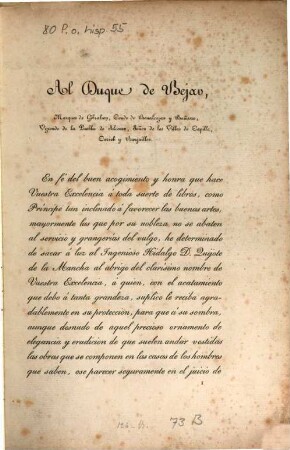 80 P. o. hisp 55
Al Duque de Bejar,
Marques de Gibraleon, Conde de Benalcazar y Bañares,
Vizconde de la Puebla de Alcocer, Señor de las Villas de Capilla,
Curiel y Burguillos.
En fé del buen acogimiento y honra que hace
Vuestra Excelencia á toda suerte de libros, como
Príncipe tan inclinado á favorecer las buenas artes,
mayormente las que por su nobleza no se abaten
al servicio y grangerías del vulgo, he determinado
de sacar á luz al Ingenioso Hidalgo D. Quijote
de la Mancha al abrigo del clarísimo nombre de
Vuestra Excelencia, á quien, con el acatamiento
que debo á tanta grandeza, suplico le reciba agra-
dablemente en su protección, para que á su sombra,
aunque desnudo de aquel precioso ornamento de
elegancia y erudicion de que suelen andar vestidas
las obras que se componen en las casas de los hombres
que saben, ose parecer seguramente en el juicio de
73 B